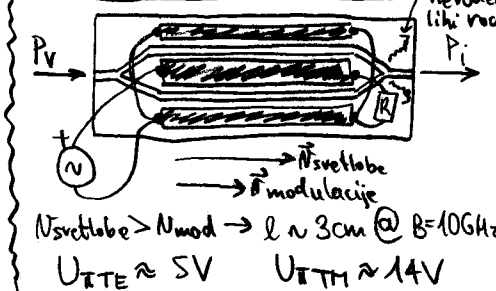 lihi rod
Pv
Pi
R
+
~
v⃗ svetlobe
v⃗ modulacije
Nsvetlobe > Nmod → l ~ 3cm @ B=10GHz
UπTE ≈ 5V UπTM ≈ 14V